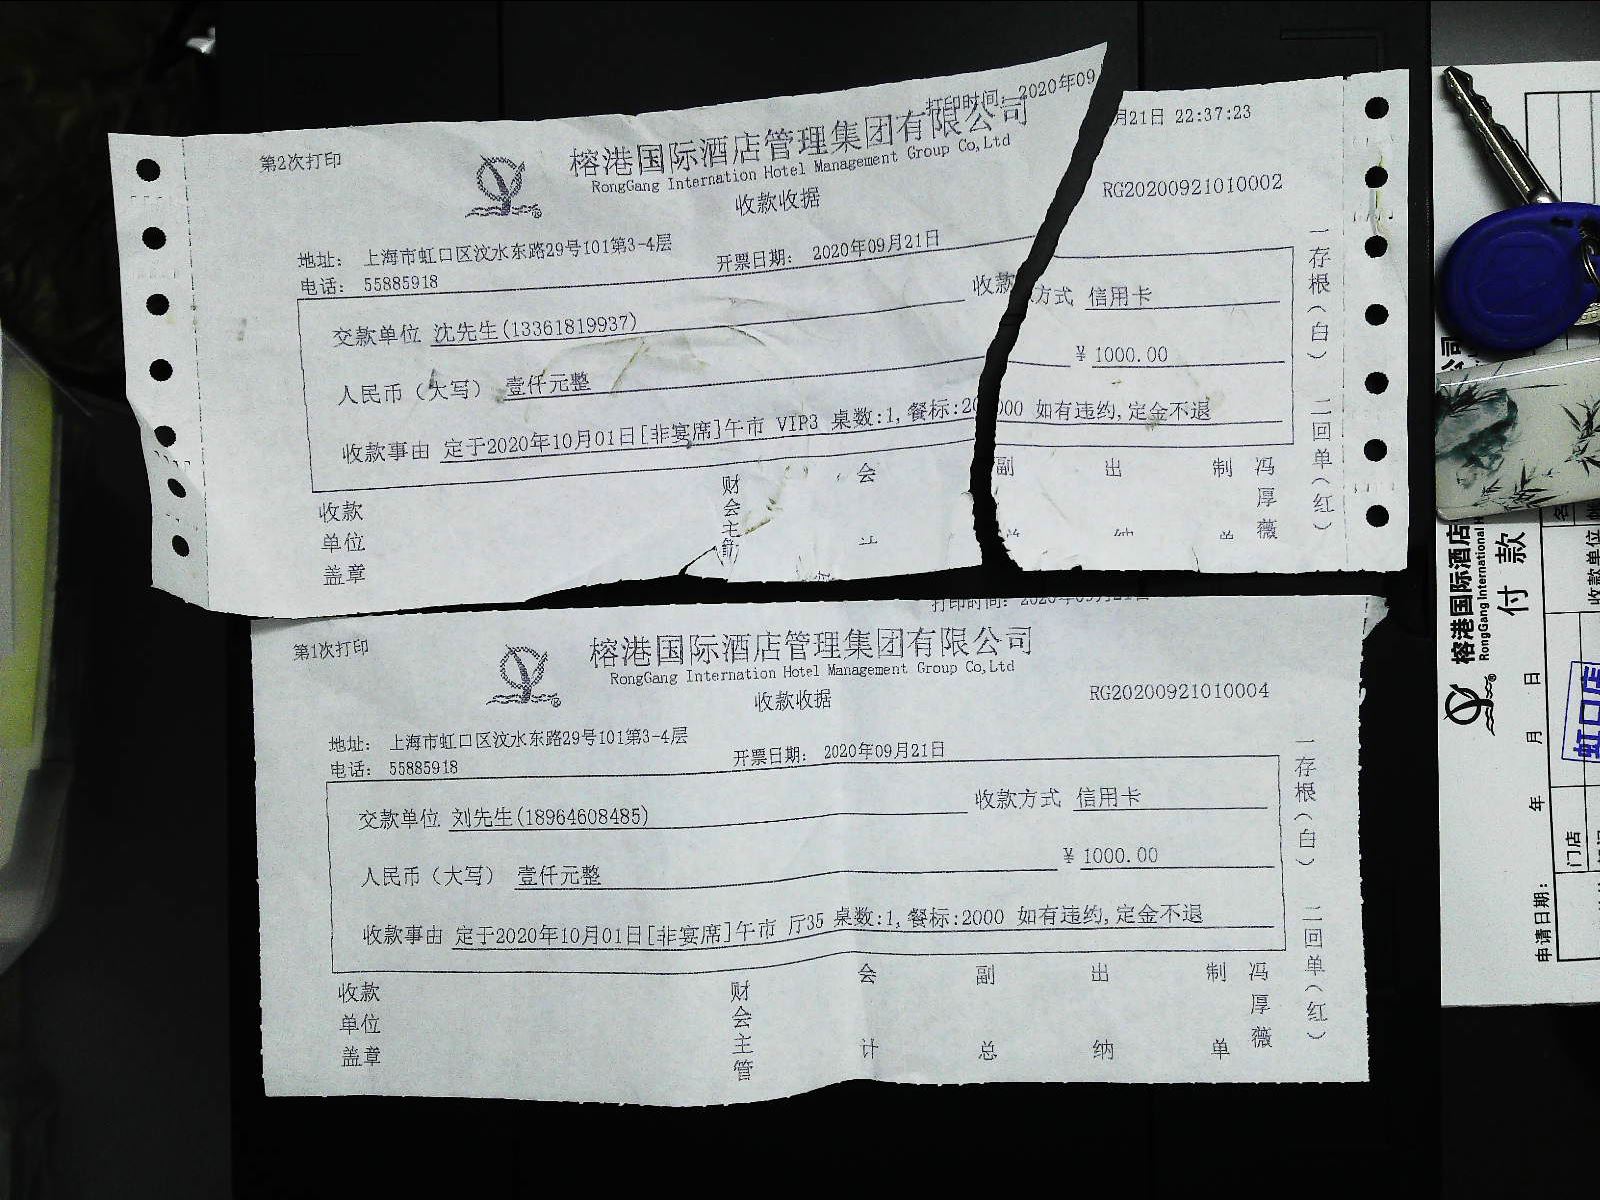 打印时间：2020年09月21日 22:37:23
第2次打印
榕港国际酒店管理集团有限公司
RongGang Internation Hotel Management Group Co,Ltd
收款收据
RG20200921010002
地址： 上海市虹口区汶水东路29号101第3-4层
电话： 55885918
开票日期： 2020年09月21日
交款单位 沈先生(13361819937)
收款方式 信用卡
人民币（大写） 壹仟元整
￥ 1000.00
收款事由 定于2020年10月01日[非宴席]午市 VIP3 桌数:1,餐标:2000 如有违约,定金不退
一存根（白） 二回单（红）
收款单位盖章
财会主管
会计
副总
出纳
制单
冯厚薇
打印时间：2020年09月21日
第1次打印
榕港国际酒店管理集团有限公司
RongGang Internation Hotel Management Group Co,Ltd
收款收据
RG20200921010004
地址： 上海市虹口区汶水东路29号101第3-4层
电话： 55885918
开票日期： 2020年09月21日
交款单位 刘先生(18964608485)
收款方式 信用卡
人民币（大写） 壹仟元整
￥ 1000.00
收款事由 定于2020年10月01日[非宴席]午市 厅35 桌数:1,餐标:2000 如有违约,定金不退
一存根（白） 二回单（红）
收款单位盖章
财会主管
会计
副总
出纳
制单
冯厚薇
榕港国际酒店
RongGang International H
付 款
年 月 日
虹口店
收款单位
门店
申请日期：